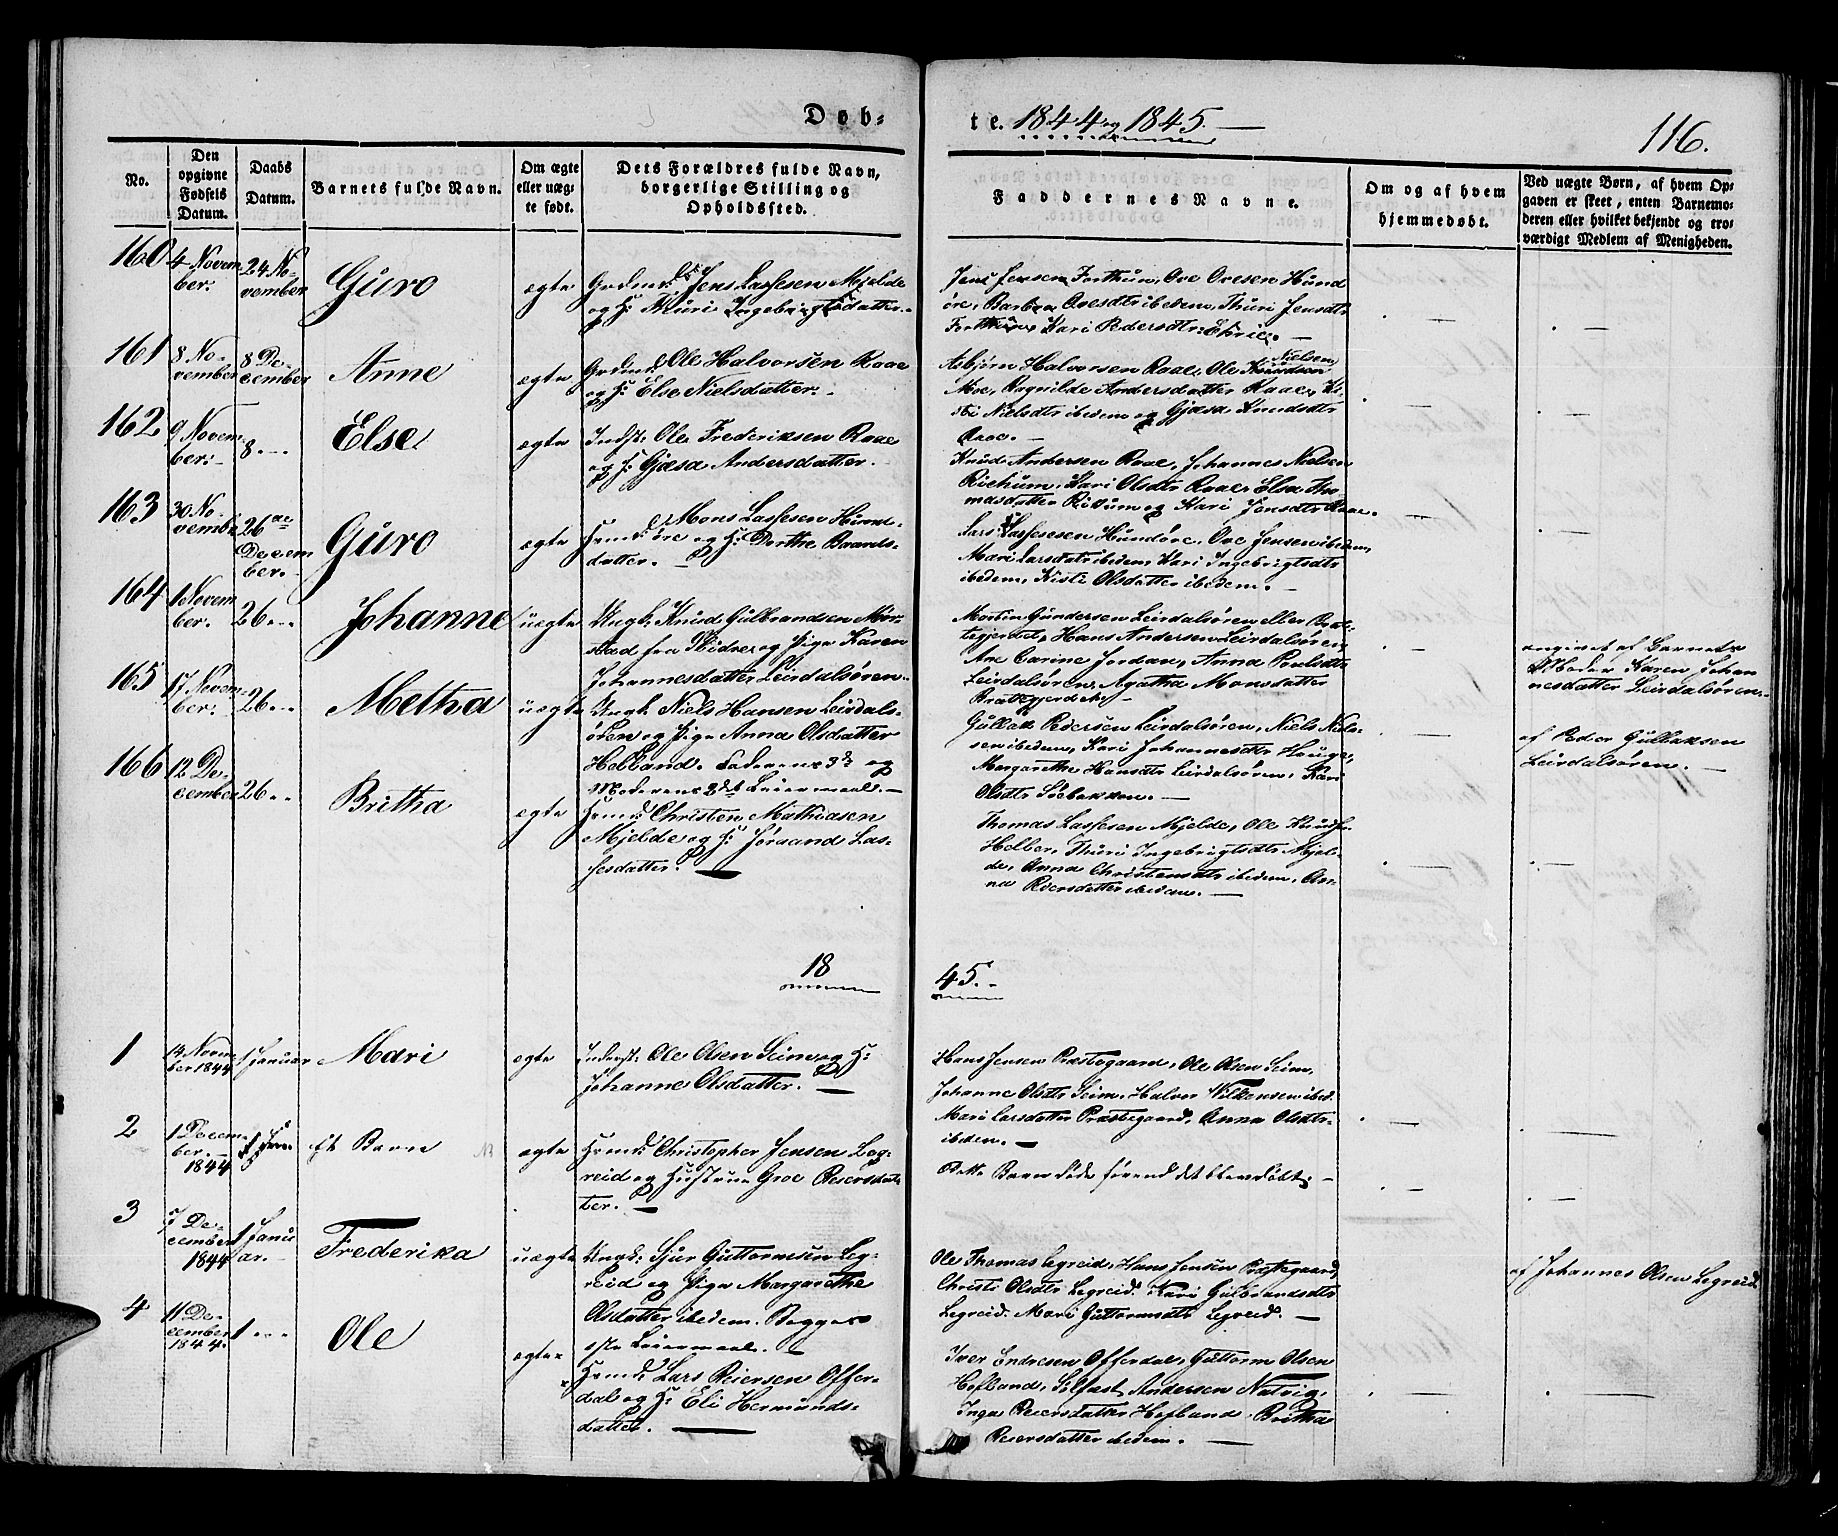 Døb=
te. 1844 og 1845.
116.
No.
Den opgivne Fødsels Datum.
Daabs Datum.
Barnets fulde Navn.
Om ægte eller uæg= te født.
Dets Forældres fulde Navn, borgerlige Stilling og Opholdssted.
Faddernes Navne.
Om og af hvem hjemmedøbt.
Ved uægte Børn, af hvem Op=
gaven er skeet, enten Barnemo=
deren eller hvilket bekjendt og tro=
værdigt Medlem af Menigheden.
160
4 Novem
ber.
24 No-
vember
Guro
ægte
Jens Lassesen Mjelde
og H: Thuri Ingebrigtsdatter.
Jens Jensen Forthun, Ove Ovesen Hund
øre, Barbra Ovesdtr ibedem, Thuri Jensdtr
Forthun, Kari Pedersdtr
161
8 No-
vember
8 De-
cember
Anne
ægte
Grdmd: Ole Halvorsen Raae
og H: Else Nielsdatter.
Asbjørn Halvorsen Raae, Ole Nielsen
Moe, Ragnilde Andersdatter Raae, Ki-
sti Nielsdtr ibedem og Gjøsa Knudsdtr
Raae.
162
9 Novem-
ber.
8.--
Else
ægte
Indst: Ole Frederiksen Raae
og H: Gjøsa Andersdatter.
Knud Andersen Raae, Johannes Nielsen
Kari Olsdtr Raae, Elsa Tho-
masdatter og Kari Jonsdtr Raae.
163
30 No-
vembr
26de
Decem
ber.
Guro
ægte
Hmd: Mons Lassesen Hund-
øre og H: Dorthe Baards-
datter.
Lars Lassesen Hundøre, Ove Jensen ibedem,
Mari Larsdatr ibedem, Kari Ingebrigtsdtr
ibedem, Kisti Olsdatter ibedem.
164
1 Novem
ber.
26---
Johanne
uægte
Ungk: Knud Gulbrandsen Mør-
stad fra og Pige Karen
Johannesdatter Leirdalsøren.
Morten Gundersen Leirdalsøren eller
Hans Andersen Leirdalsøren,
Ane Carine Jordan, Anna Poulsdtr
Leirdalsøren, Agatha Monsdatter
angivet af Barnets
Moder Karen Johan
nesdatter Leirdalsøren.
165
17 Novem-
ber.
26---
Metha
uægte
Ungk: Niels Hansen Leirdals-
øren og Pige Anna Olsdatter
Helland. Faderens 3de og
Moderens 2det Leiermaal.
Gullak Pedersen Leirdalsøren, Niels Niel-
sen ibedem, Kari Johannesdtr Hauge,
Margarethe Hansdtr Leirdalsøren, Kari
Olsdtr
af Peder Gullaksen
Leirdalsøren.
166
12 De-
cember
26--
Britha
ægte
Hmd: Christen Mathiasen
Mjelde og H: Jørand Las-
sesdatter.
Thomas Lassesen Mjelde, Ole
Thuri Ingebrigtsdtr Mjel-
de, Anna Christensdtr ibedem, An-
na Reiersdatter ibedem.
18
45.
1
14 Novm
ber 1844
1 Januar
Mari
ægte
Inderst: Ole Olsen Seim og H:
Johanne Olsdatter.
Hans Jensen Præstegaard, Ole Olsen Seim,
Johanne Olsdtr Seim, Halvor Wilkensen ibid.
Mari Larsdatter Præstegaard, Anna Olsdtr
ibedem.
2
1 Decem-
ber.
1844
Et Barn
ægte
Hmd: Christopher Jensen Leg-
reid og Hustrue Groe Reiersdat-
ter.
Dette Barn døde førend det blev døbt.
3
7 De-
cember
1844
1 Janu
ar.
Frederika
uægte
Ungk: Sjur Guttormsen Leg-
reid og Pige Margarethe
Olsdatter ibedem. Begges
1ste Leiermaal.
Ole Thomas Legreid, Hans Jensen Præstegaard,
Christi Olsdtr Legreid, Kari Gulbrandsdtr
Legreid, Mari Guttormsdtr Legreid.
af Johannes Olsen Legreid
4
11 De-
cember
1844.
1---
Ole
ægte
Hmd: Lars Reiersen Offer-
dal og H: Eli Hermunds-
datter.
Iver Endresen Offerdal, Guttorm Olsen
Hofland, Sølfast Andersen Natvig,
Inga Reiersdatter Hofland, Britha
Reiersdatter ibedem.